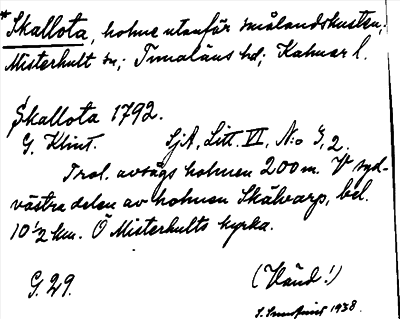 *Skallota, holme utanför smålandskusten,
Misterhult sn; Tunaläns hd; Kalmar l.
Skallota 1792.
G. Klint. SjA, Litt. VI, N:o 3, 2.
Trol. avsågs holmen 200 m. V syd-
västra delen av holmen Skälvarp, bel.
10 1/2 km. Ö Misterhults kyrka.
G. 29. (Vänd!)
1938.